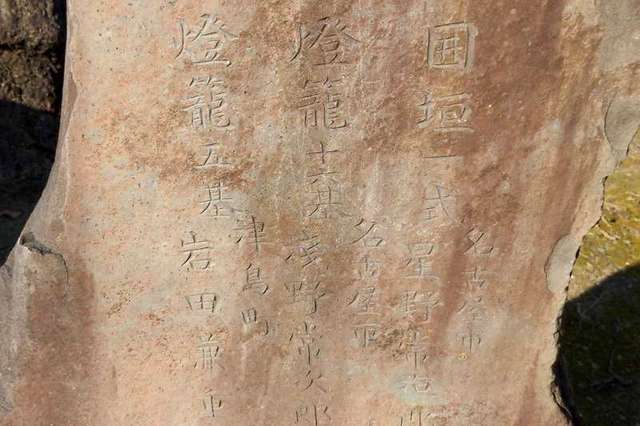 囲垣一式
名古屋市
星野常右郎
燈籠十六基
名古屋市
浅野常次郎
燈籠五基
津島町
岩田兼